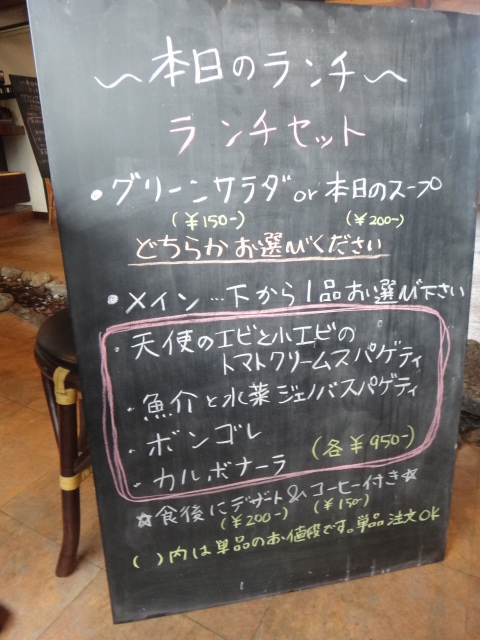 〜本日のランチ〜
ランチセット
・グリーンサラダor本日のスープ
(¥150-) (¥200-)
どちらかお選びください
・メイン…下から1品お選び下さい
・天使のエビと小エビの
トマトクリームスパゲティ
・魚介と水菜ジェノバスパゲティ
・ボンゴレ
・カルボナーラ (各¥950-)
☆食後にデザート&コーヒー付き☆
(¥200-) (¥150-)
( )内は単品のお値段です。単品注文OK